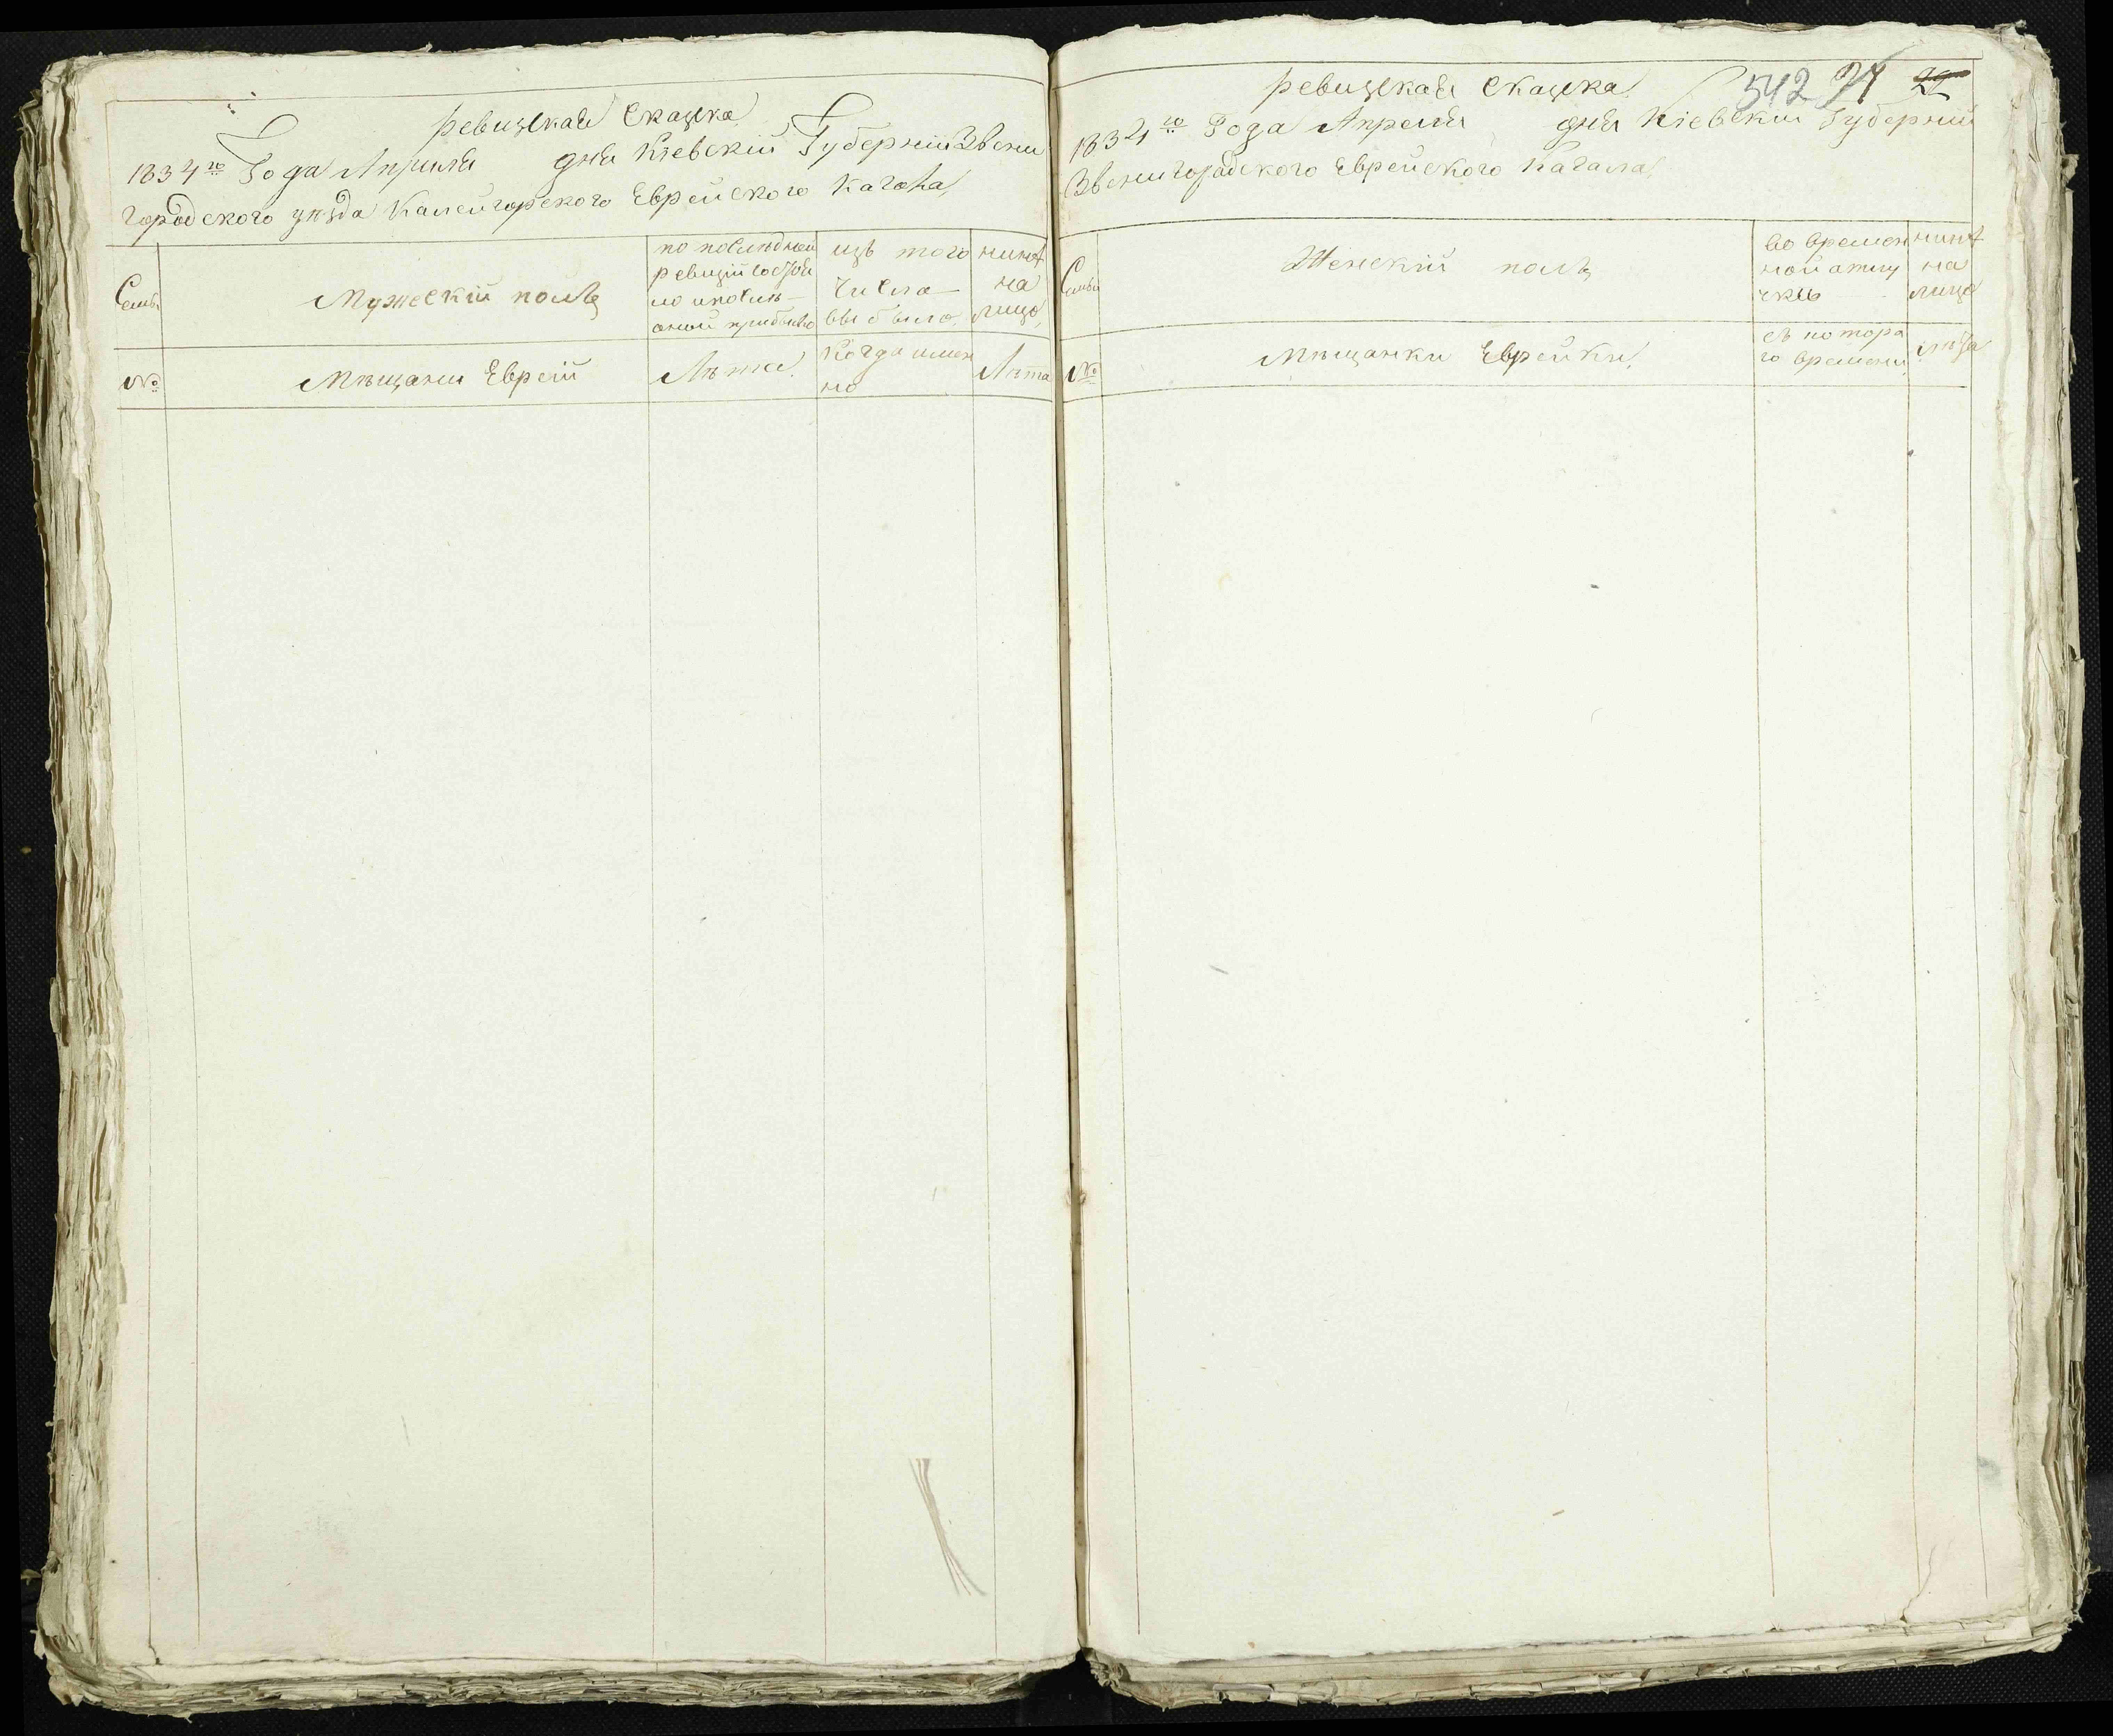 Ревизская Сказка
1834го Года Априля дня Кіевскій Губерніи Звени
городского уѣзда Калейгорского Еврейского Кагала
Семьи
Мужескій полъ
по послѣдней
ревизіи состоя
ло и послѣ
оной прибыло
изъ того
числа
выбыло
нинѣ
на
лицо
№
Мѣщани Еврей
Лѣта
Когда имен
но
Лѣта
Ревизская Сказка
542
1834го Года Апреля дня Кіевскій Губерній
Звенигородского Еврейского Кагала
Семьи
Женскій полъ
во времен
ной отлу
чкѣ
нинѣ
на
лицо
№
Мѣщанки Еврейки
съ котора
го времени
лѣта